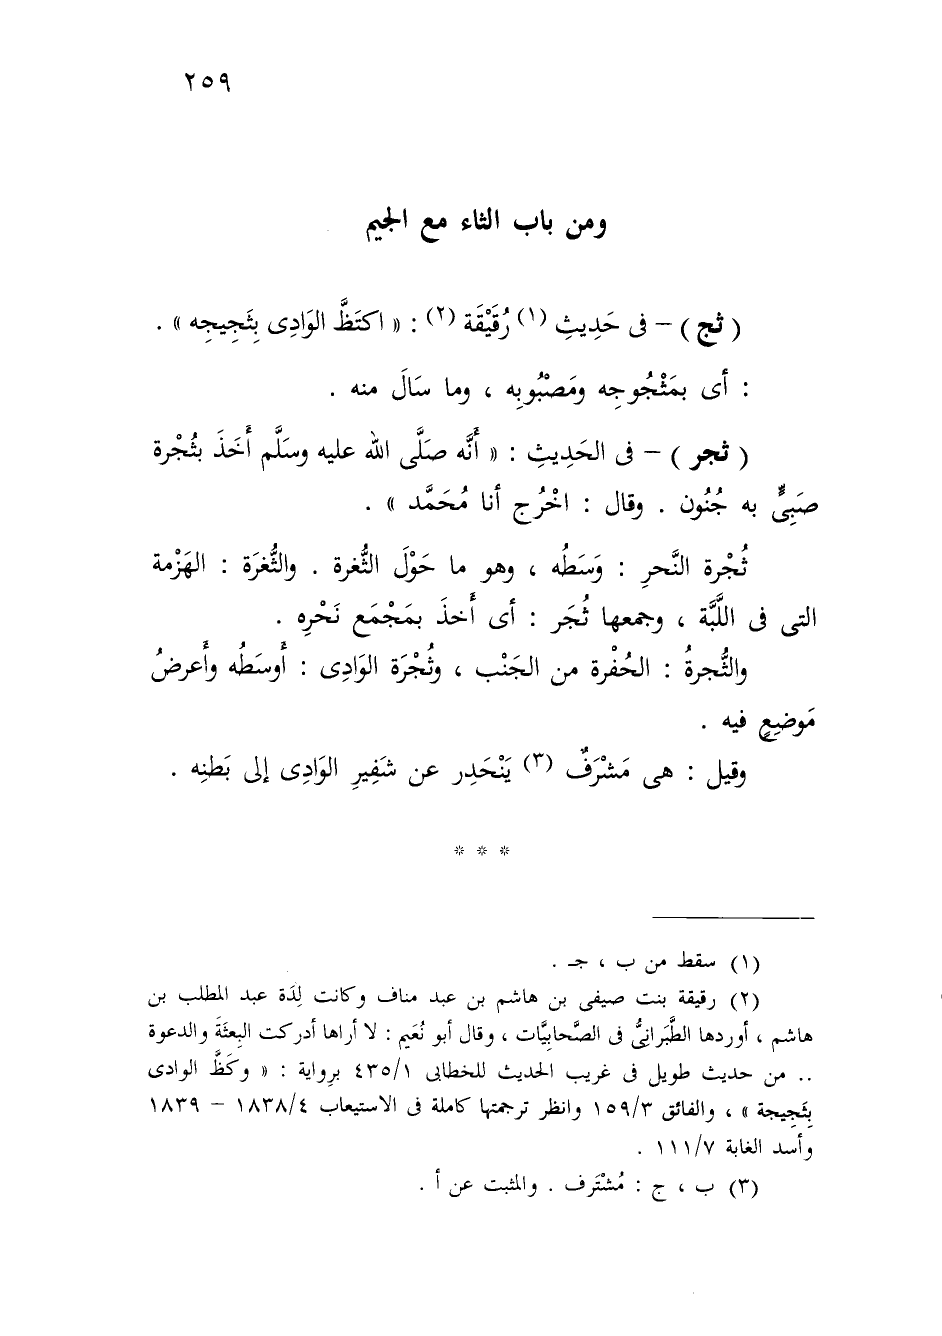 ٢٥٩
ومن باب الثاء مع الجيم
( ثج ) – فى حَدِيثِ (١) رُقَيْقَة (٢) : « اكتَظَّ الوَادِى بِثَجِيجِه » .
: أى بمَثْجُوجِه ومَصْبُوبِه ، وما سَالَ منه .
( ثجر ) – فى الحَدِيثِ : « أَنَّه صَلَّى الله عليه وسَلَّم أَخَذ بثُجْرة
صَبِىٍّ به جُنُون . وقال : اخْرُج أنا مُحَمَّد » .
ثُجْرة النَّحرِ : وَسَطُه ، وهو ما حَوْلَ الثُّغرة . والثُّغرَة : الهَزْمة
التى فى اللَّبَّة ، وجمعها ثُجَر : أى أَخذَ بمَجْمَع نَحْرِه .
والثُّجرةُ : الحُفْرة من الجَنْب ، وثُجْرَة الوَادِى : أَوسَطُه وأَعرضُ
مَوضِعٍ فيه .
وقيل : هى مَشْرَفٌ (٣) يَنْحَدِر عن شَفِيرِ الوَادِى إلى بَطنِه .
* * *
(١) سقط من ب ، جـ .
(٢) رقيقة بنت صيفى بن هاشم بن عبد مناف وكانت لِدَة عبد المطلب بن
هاشم ، أوردها الطَّبَرانِىُّ فى الصَّحابِيَّات ، وقال أبو نُعَيم : لا أراها أدركت البِعثَة والدعوة
.. من حديث طويل فى غريب الحديث للخطابى ٤٣٥/١ برِواية : « وكَظَّ الوادى
بِثَجِيجة » ، والفائق ١٥٩/٣ وانظر ترجمتها كاملة فى الاستيعاب ١٨٣٨/٤ – ١٨٣٩
وأسد الغابة ١١١/٧ .
(٣) ب ، ج : مُشْتَرف . والمثبت عن أ .